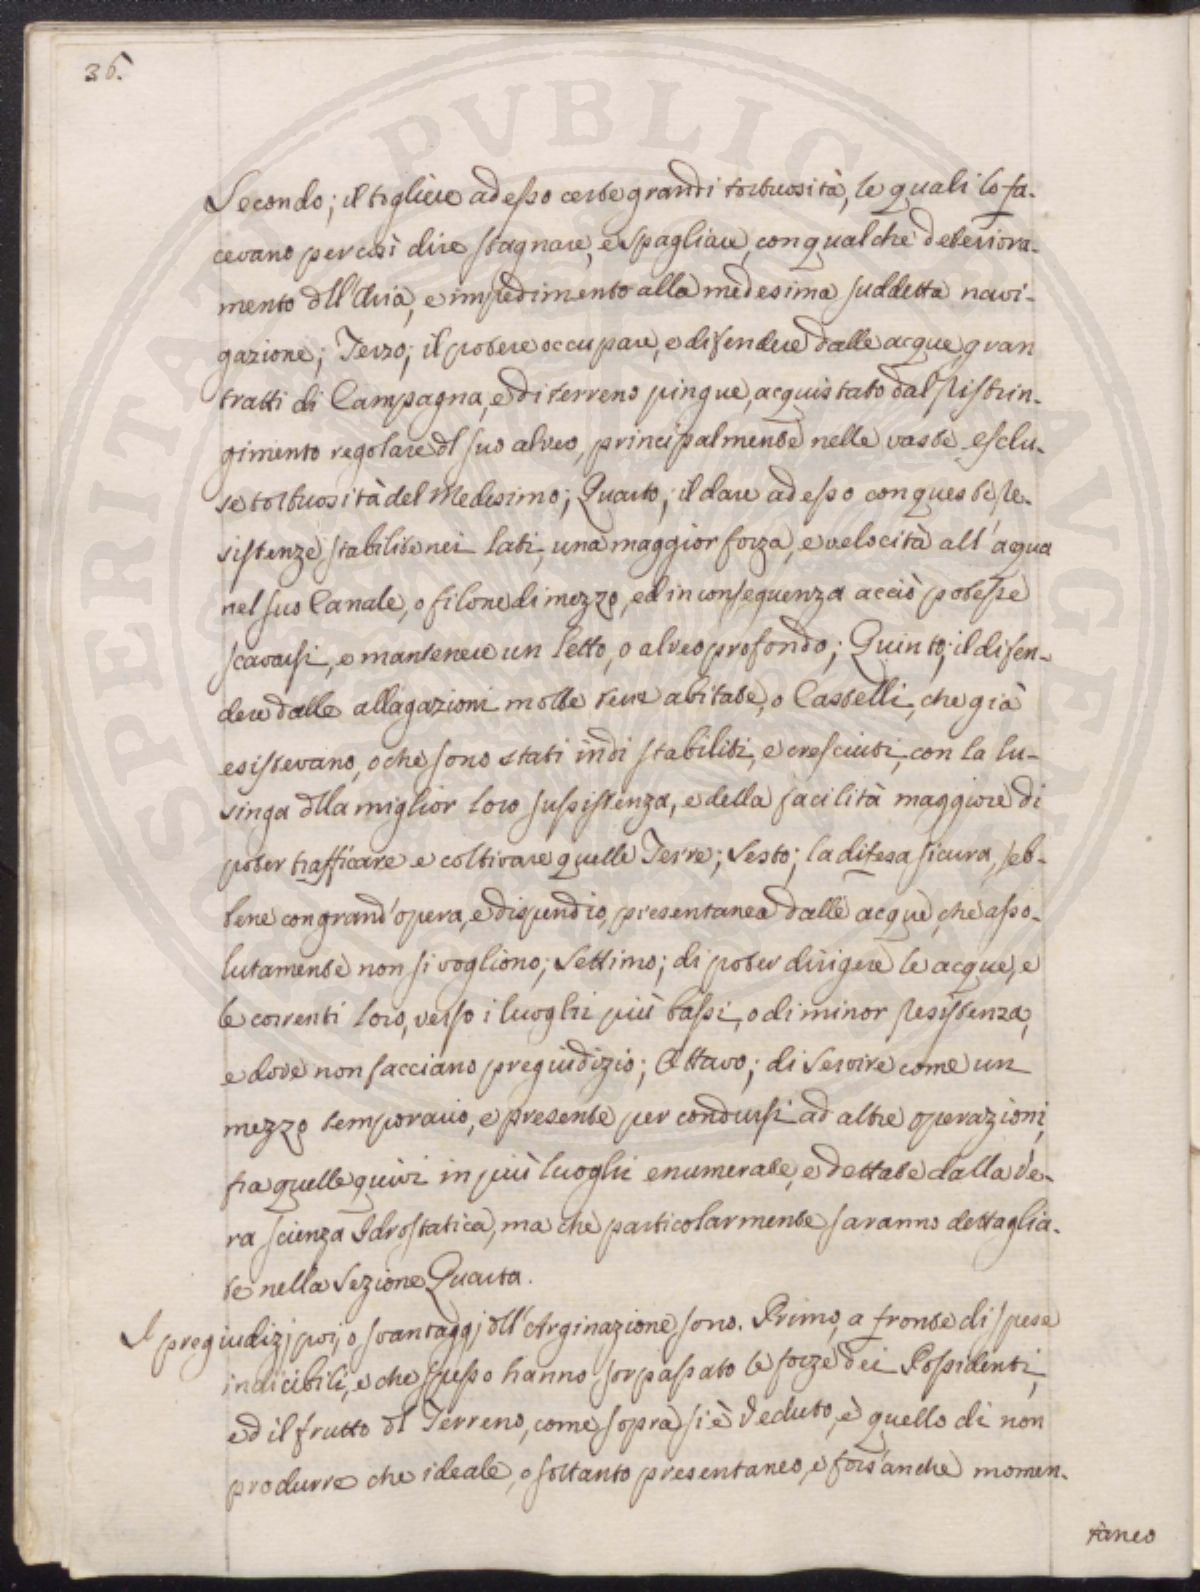 36.
Secondo; il togliere ad esso certe grandi tortuosità, le quali lo fa-
cevano per così dire stagnare, e spagliare, con qualche deteriora-
mento dll'Aria, e impedimento alla medesima suddetta navi-
gazione; Terzo; il potere occupare, e difendere dalle acque gran
tratti di Campagna, e di terreno pingue, acquistato dal ristrin-
gimento regolare dl suo alveo, principalmente nelle vaste esclu-
se tortuosità del Medesimo; Quarto; il dare ad esso con queste re-
sistenze stabilite nei lati, una maggior forza, e velocità all'acqua
nel suo Canale, o filone di mezzo, ed in conseguenza acciò potesse
scavarsi, e mantenere un letto, o alveo profondo; Quinto; il difen-
dere dalle allagazioni molte terre abitate, o Castelli, che già
esistevano, o che sono stati indi stabiliti, e cresciuti, con la lu-
singa dlla miglior loro sussistenza, e della facilità maggiore di
poter trafficare e coltivare quelle Terre; Sesto; la difesa sicura, seb-
bene con grand'opera, e dispendio, presentanea dalle acque, che asso-
lutamente non si vogliono; Settimo; di poter dirigere le acque, e
le correnti loro, verso i luoghi più bassi, o di minor resistenza,
e dove non facciano pregiudizio; Ottavo; di servire come un
mezzo temporario, e presente per condursi ad altre operazioni,
fra quelle quivi in più luoghi enumerate, e dettate dalla ve-
ra scienza Idrostatica, ma che particolarmente saranno dettaglia-
te nella Sezione Quarta.
I pregiudizj poi, o svantaggj dll'Arginazione sono. Primo, a fronte di spese
indicibili, e che spesso hanno sorpassato le forze dei Possidenti,
ed il frutto dl Terreno, come sopra si è veduto, è quello di non
produrre che ideale, o soltanto presentaneo, e fors'anche momen-
taneo
PVBLIC